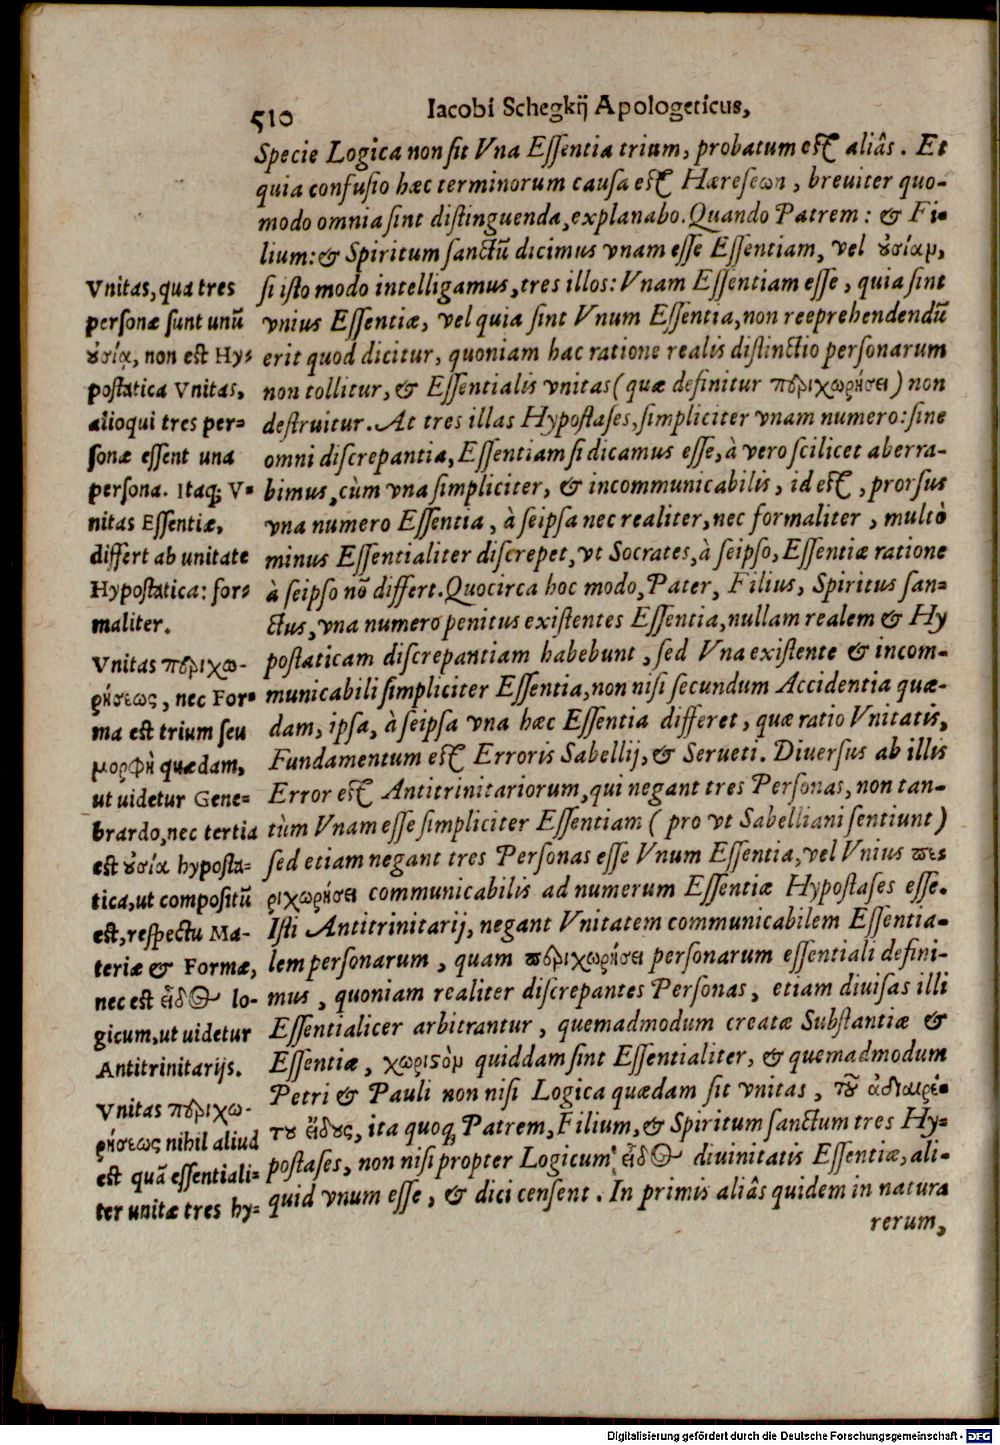 510
Iacobi Schegkij Apologeticus,
Specie Logica non sit Vna Essentia trium, probatum est aliâs. Et
quia confusio hæc terminorum causa est Hæreseων, breuiter quo-
modo omnia sint distinguenda, explanabo. Quando Patrem: & Fi-
lium: & Spiritum sanctũ dicimus vnam esse Essentiam, vel ȣσίαμ,
si isto modo intelligamus, tres illos: Vnam Essentiam esse, quia sint
vnius Essentiæ, vel quia sint Vnum Essentia, non reeprehendendũ
erit quod dicitur, quoniam hac ratione realis distinctio personarum
non tollitur, & Essentialis vnitas (quæ definitur περιχωρήσει) non
destruitur. At tres illas Hypostases, simpliciter vnam numero: sine
omni discrepantia, Essentiam si dicamus esse, à vero scilicet aberra-
bimus, cùm vna simpliciter, & incommunicabilis, id est, prorsus
vna numero Essentia, à seipsa nec realiter, nec formaliter, multò
minus Essentialiter discrepet, vt Socrates, à seipso, Essentiæ ratione
à seipso nõ differt. Quocirca hoc modo, Pater, Filius, Spiritus san-
ctus, vna numero penitus existentes Essentia, nullam realem & Hy
postaticam discrepantiam habebunt, sed Vna existente & incom-
municabili simpliciter Essentia, non nisi secundum Accidentia quæ-
dam, ipsa, à seipsa vna hæc Essentia differet, quæ ratio Vnitatis,
Fundamentum est Erroris Sabellij, & Serueti. Diuersus ab illis
Error est Antitrinitariorum, qui negant tres Personas, non tan-
tùm Vnam esse simpliciter Essentiam (pro vt Sabelliani sentiunt)
sed etiam negant tres Personas esse Vnum Essentia, vel Vnius πε-
ριχωρήσει communicabilis ad numerum Essentiæ Hypostases esse.
Isti Antitrinitarij, negant Vnitatem communicabilem Essentia-
lem personarum, quam περιχωρήσει personarum essentiali defini-
mus, quoniam realiter discrepantes Personas, etiam diuisas illi
Essentialicer arbitrantur, quemadmodum creatæ Substantiæ &
Essentiæ, χωριςὸμ quiddam sint Essentialiter, & quemadmodum
Petri & Pauli non nisi Logica quædam sit vnitas, τȣ͂ ἀδιαιρέ-
τȣ εἴδȣς, ita quoq; Patrem, Filium, & Spiritum sanctum tres Hy-
postases, non nisi propter Logicum εἶδ⊙ diuinitatis Essentiæ, ali-
quid vnum esse, & dici censent. In primis aliâs quidem in natura
rerum,
Vnitas, qua tres
personæ sunt unũ
ȣσίᾳ, non est Hy-
postatica Vnitas,
alioqui tres per-
sonæ essent una
persona. Itaq; V-
nitas Essentiæ,
differt ab unitate
Hypostatica: for-
maliter.
Vnitas περιχω-
ρήσεως, nec For-
ma est trium seu
μορφὴ quædam,
ut uidetur Gene-
brardo, nec tertia
est ȣσία hyposta-
tica, ut compositũ
est, respectu Ma-
teriæ & Formæ,
nec est εἶδ⊙ lo-
gicum, ut uidetur
Antitrinitarijs.
Vnitas περιχω-
ρήσεως nihil aliud
est quã essentiali-
ter unitæ tres hy-
Digitalisierung gefördert durch die Deutsche Forschungsgemeinschaft - DFG